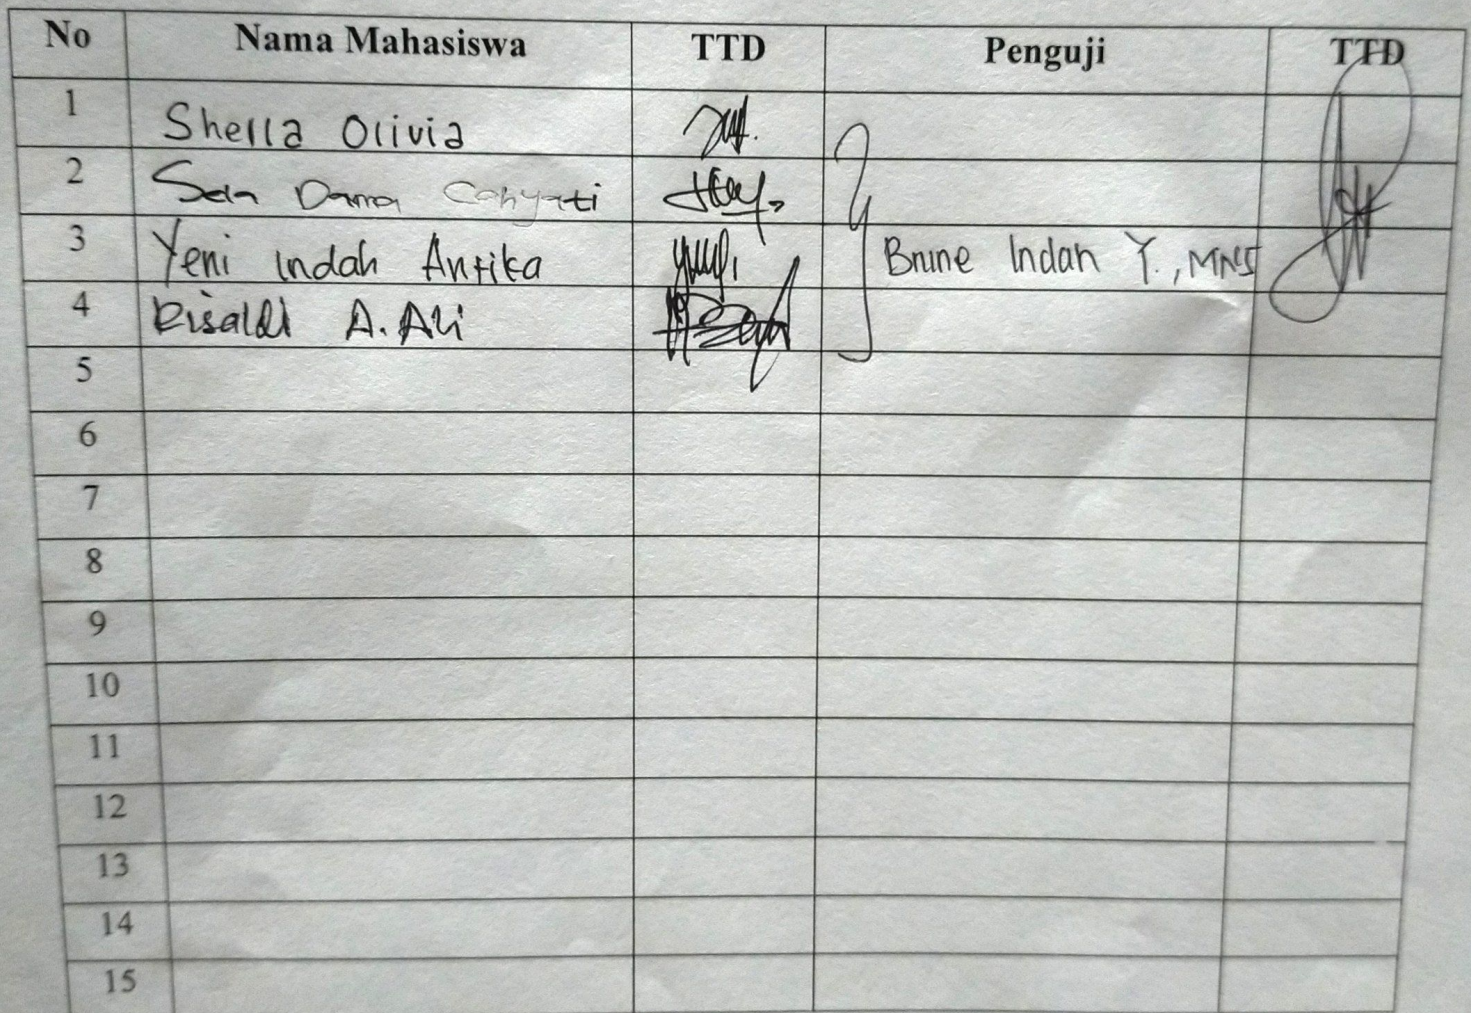 No Nama Mahasiswa TTD Penguji TTD
1 Shella Olivia
2 Dama Cahyati
3 Yeni Indah Antika Indah Y., MNS
4 Risaldi A. Ali
5
6
7
8
9
10
11
12
13
14
15